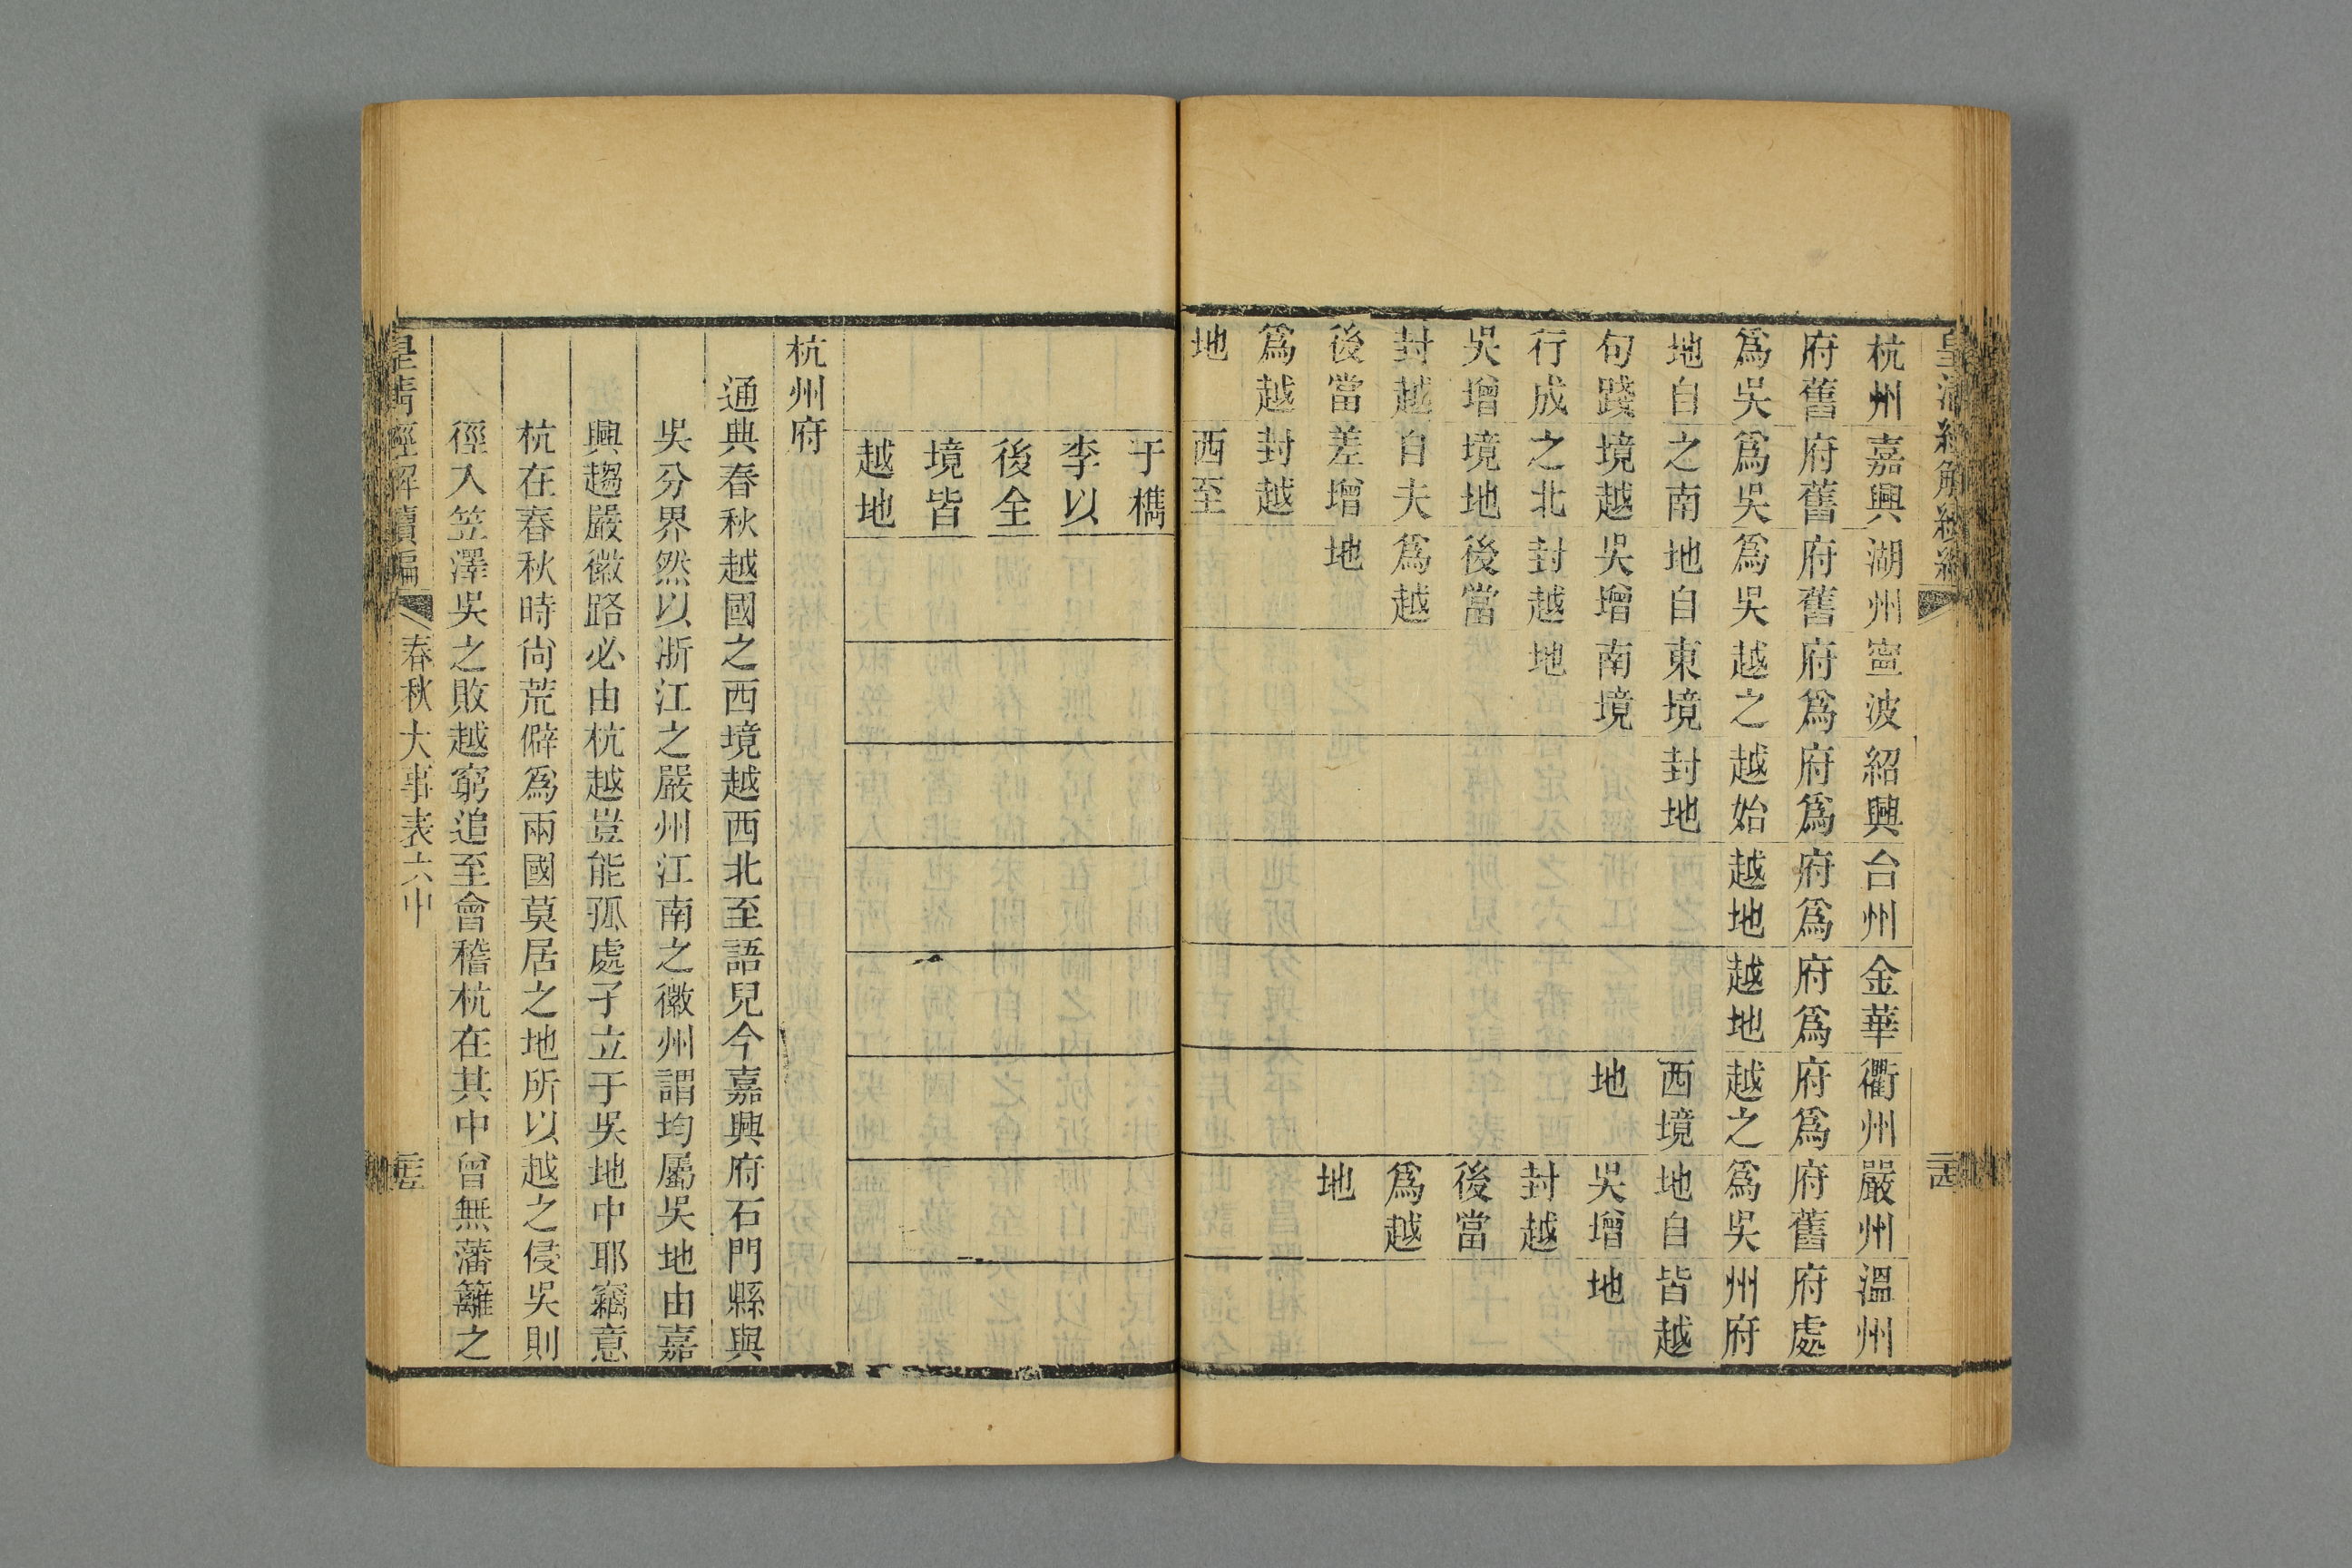 皇清經解續編
杭州 嘉興 湖州 寧波 紹興 台州 金華 衢州 嚴州 溫州
府舊 府舊 府舊 府爲 府爲 府爲 府爲 府爲 府舊 府處
爲吳 爲吳 爲吳 越之 越始 越地 越地 越之 爲吳 州府
地自 之南 地自 東境 封地 西境 地自 皆越
句踐 境越 吳增 南境 地 吳增 地
行成 之北 封越 地 封越
吳增 境地 後當 後當
封越 自夫 爲越 爲越
後當 差增 地 地
爲越 封越
地 西至
于檇
李以
後全
境皆
越地
杭州府
通典春秋越國之西境越西北至語兒今嘉興府石門縣與
吳分界然以浙江之嚴州江南之徽州謂均屬吳地由嘉
興趨嚴徽路必由杭越豈能孤處孑立于吳地中耶竊意
杭在春秋時尚荒僻爲兩國莫居之地所以越之侵吳則
徑入笠澤吳之敗越窮追至會稽杭在其中曾無藩籬之
皇清經解續編 春秋大事表六中